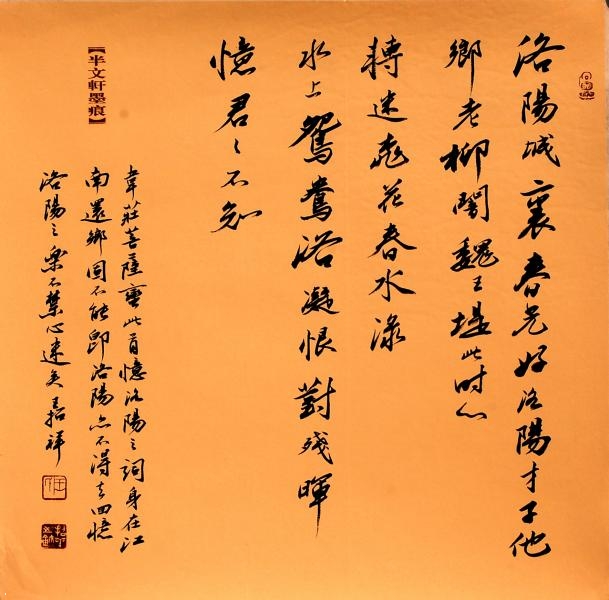 洛陽城裏春光好洛陽才子他
鄉老柳闇魏王堤此時心
轉迷桃花春水淥
水上鴛鴦浴凝恨對殘暉
憶君〻不知
韋莊菩薩蠻此首憶洛陽之詞身在江
南還鄉固不能即洛陽亦不得去回憶
洛陽之樂不禁心迷矣嘉祥
【半文軒墨痕】